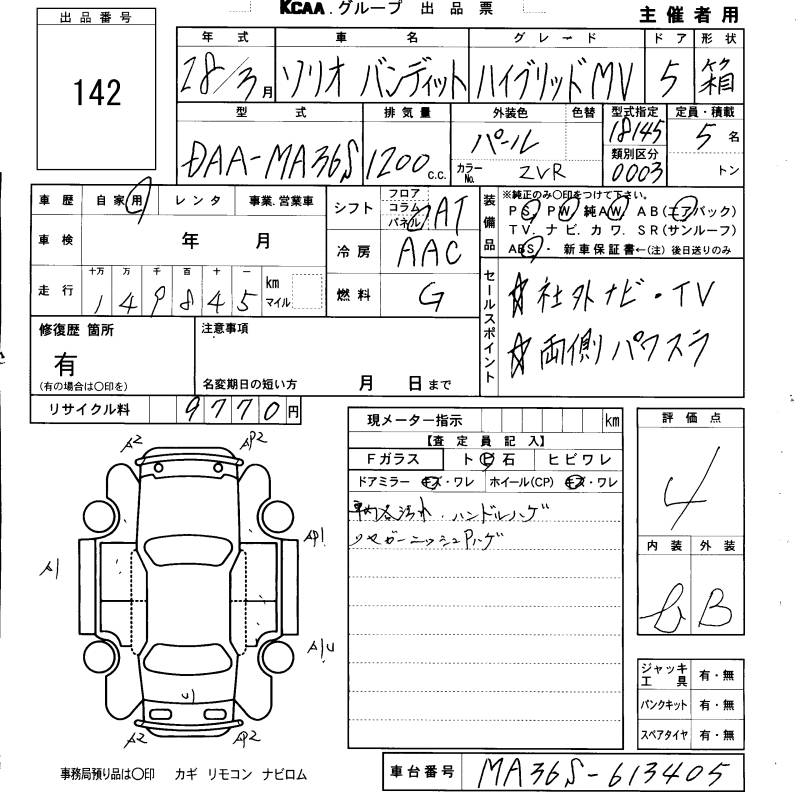 KCAA.グループ 出品票
主催者用
出品番号
142
年式 車名 グレード ドア 形状
28/3月 ソリオ バンディット ハイブリッドMV 5 箱
型式 排気量 外装色 色替 型式指定 定員・積載
DAA-MA36S 1200c.c. パール 18145 5名
カラーNo. ZVR 類別区分 0003 トン
車歴 自家用 レンタ 事業.営業車
シフト フロア コラム パネル AT
装備品 ※純正のみ〇印をつけて下さい。
PS. PW. 純AW. AB(エアバック)
TV. ナビ. カワ. SR(サンルーフ)
ABS・新車保証書←(注) 後日送りのみ
車検 年 月
冷房 AAC
走行 十万 万 千 百 十 一
149845 km マイル
燃料 G
セールスポイント
☆社外ナビ・TV
☆両側パワスラ
修復歴 箇所
有
(有の場合は〇印を)
注意事項
名変期日の短い方 月 日まで
リサイクル料 9770円
現メーター指示 km
【査定員記入】
Fガラス ト ビ 石 ヒビワレ
ドアミラー キズ・ワレ ホイール(CP) キズ・ワレ
車内各汚れ.ハンドルハゲ
リヤガーニッシュPハゲ
評価点
4
内装 外装
B
A2 AP2
AP1
A1
U
A2 AP2
ジャッキ工具 有・無
パンクキット 有・無
スペアタイヤ 有・無
事務局預り品は〇印 カギ リモコン ナビロム
車台番号 MA36S-613405